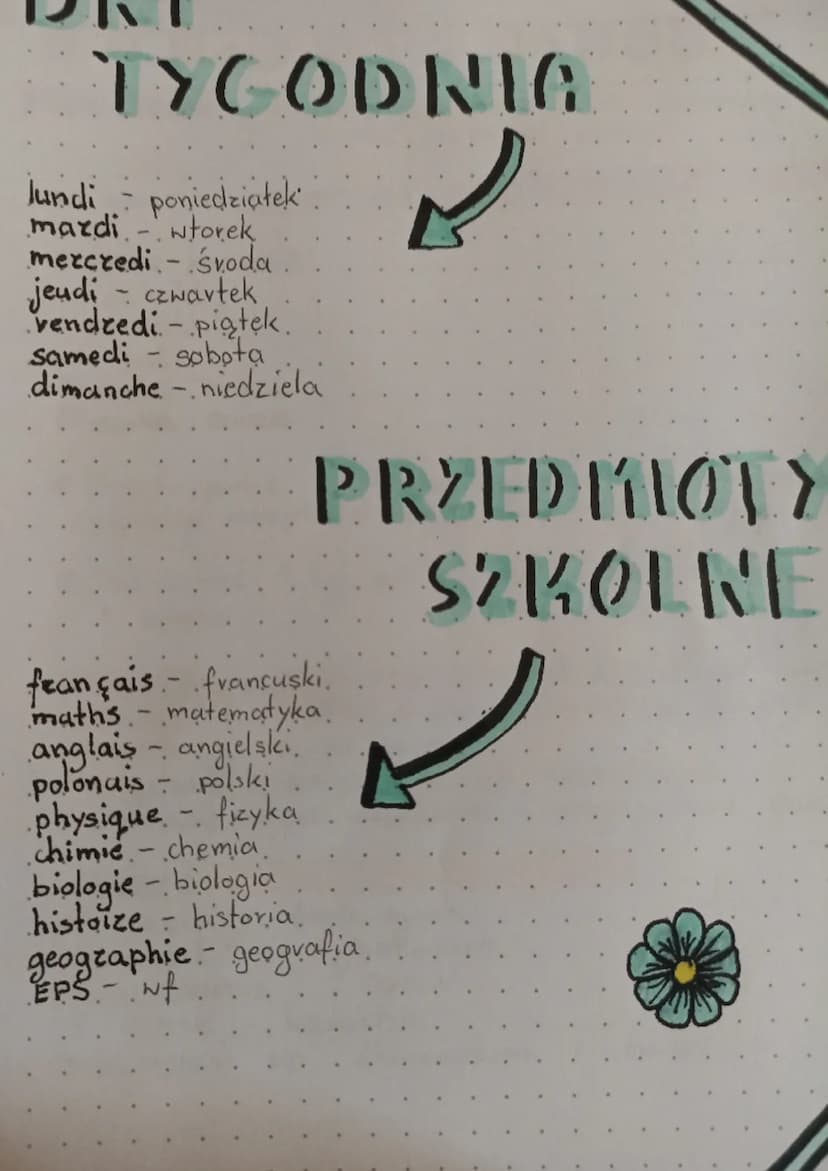 DNI
TYGODNIA
lundi - poniedziałek
mardi - wtorek
mercredi - środa
jeudi - czwartek
vendredi - piątek
samedi - sobota
dimanche - niedziela
PRZEDMIOTY
SZKOLNE
français - francuski
maths - matematyka
anglais - angielski
polonais - polski
physique - fizyka
chimie - chemia
biologie - biologia
histoire - historia
geographie - geografia
EPS - wf